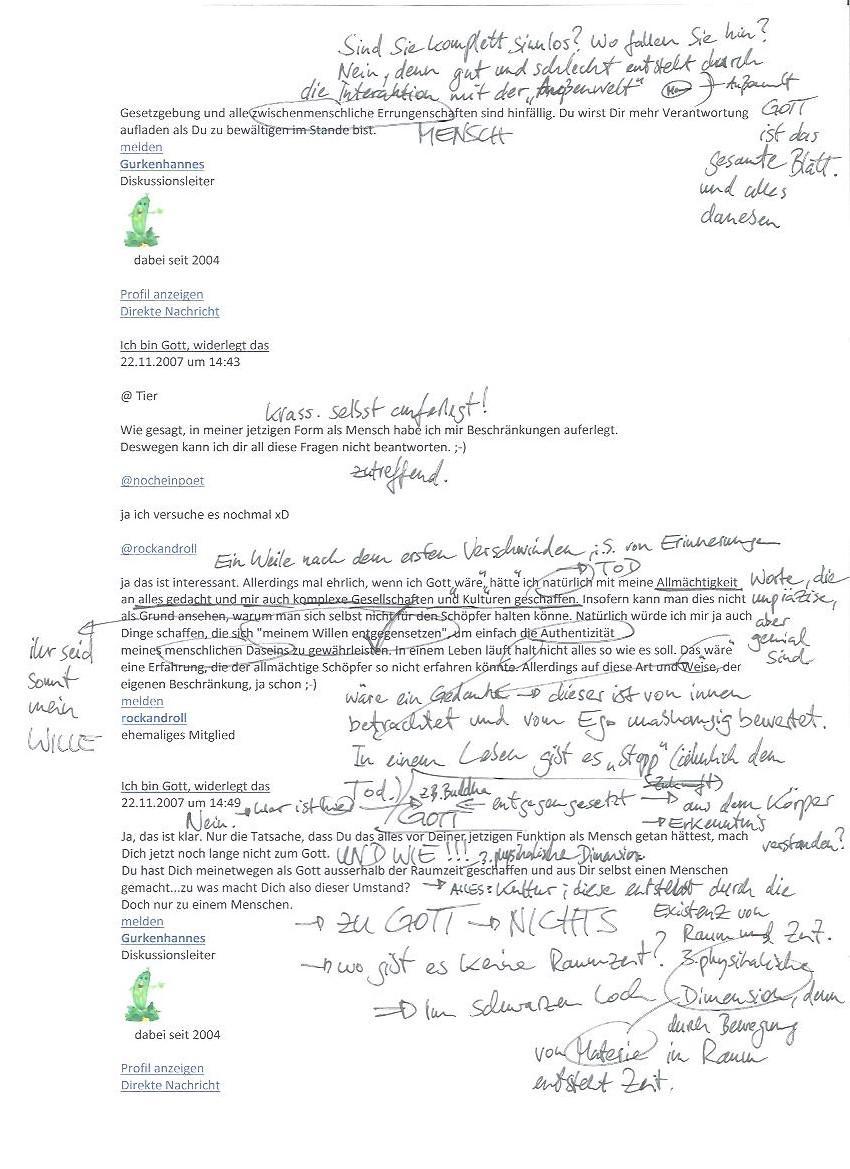 Sind Sie komplett sinnlos? Wo fallen Sie hin?
Nein, denn gut und schlecht entsteht durch
die Interaktion mit der "Außenwelt"
Gesetzgebung und alle zwischenmenschliche Errungenschaften sind hinfällig. Du wirst Dir mehr Verantwortung
aufladen als Du zu bewältigen im Stande bist.
MENSCH
GOTT
ist das
gesamte Blatt.
und alles
melden
Gurkenhannes
Diskussionsleiter
dabei seit 2004
Profil anzeigen
Direkte Nachricht
Ich bin Gott, widerlegt das
22.11.2007 um 14:43
@ Tier
krass. selbst auferlegt!
Wie gesagt, in meiner jetzigen Form als Mensch habe ich mir Beschränkungen auferlegt.
Deswegen kann ich dir all diese Fragen nicht beantworten. ;-)
zutreffend.
@nocheinpoet
ja ich versuche es nochmal xD
@rockandroll
Ein Weile nach dem ersten Verschwinden, i.S. von Erinnerungen
→ TOD
ja das ist interessant. Allerdings mal ehrlich, wenn ich Gott wäre, hätte ich natürlich mit meine Allmächtigkeit
an alles gedacht und mir auch komplexe Gesellschaften und Kulturen geschaffen. Insofern kann man dies nicht
als Grund ansehen, warum man sich selbst nicht für den Schöpfer halten könne. Natürlich würde ich mir ja auch
Dinge schaffen, die sich "meinem Willen entgegensetzen", um einfach die Authentizität
meines menschlichen Daseins zu gewährleisten. In einem Leben läuft halt nicht alles so wie es soll. Das wäre
eine Erfahrung, die der allmächtige Schöpfer so nicht erfahren könnte. Allerdings auf diese Art und Weise, der
eigenen Beschränkung, ja schon ;-)
Worte, die
unpräzise,
aber
genial
sind
ihr seid
somit
mein
WILLE
wäre ein Gedanke → dieser ist von innen
betrachtet und vom Ego unabhängig bewertet.
In einem Leben gibt es "Stopp" (ähnlich dem
Tod.)
melden
rockandroll
ehemaliges Mitglied
Ich bin Gott, widerlegt das
22.11.2007 um 14:49
wer ist hier
z.B. Buddha
GOTT
entgegengesetzt → aus dem Körper
→ Erkenntnis
verstanden?
Nein.
Ja, das ist klar. Nur die Tatsache, dass Du das alles vor Deiner jetzigen Funktion als Mensch getan hättest, mach
Dich jetzt noch lange nicht zum Gott.
UND WIE!!!
3. physikalische Dimension
Du hast Dich meinetwegen als Gott ausserhalb der Raumzeit geschaffen und aus Dir selbst einen Menschen
gemacht...zu was macht Dich also dieser Umstand?
→ ALLES: Kultur; diese entsteht durch die
Existenz von
Raum und Zeit.
Doch nur zu einem Menschen.
→ ZU GOTT → NICHTS
melden
Gurkenhannes
Diskussionsleiter
→ wo gibt es keine Raumzeit?
⇒ Im schwarzen Loch
3. physikalische
Dimension, denn
durch Bewegung
von Materie in Raum
entsteht Zeit.
dabei seit 2004
Profil anzeigen
Direkte Nachricht